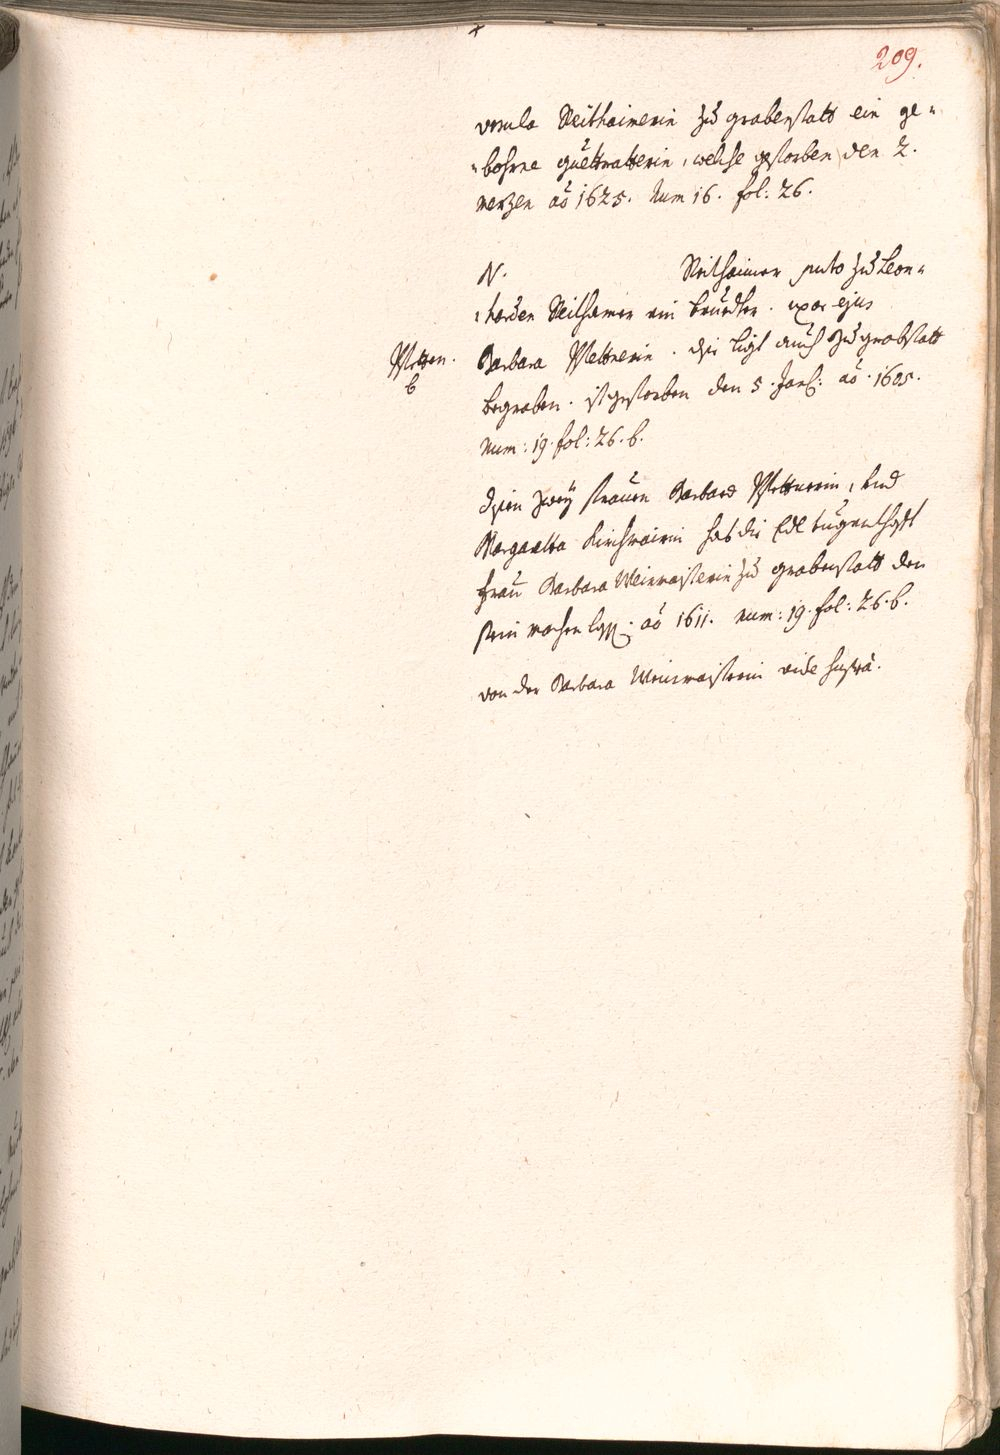 209.
ursula Neithaimerin zu grabenstatt ein ge=
=bohrne guettratterin, welche gestorben den 2.
merzen aõ 1625. Num 16. fol: 26.
N. Neithaimer puto zu Leon=
=harden Neithamer ein bruedter. uxor ejus
Barbara Mettnerin. die ligt auch zu grabstatt
begraben. ist gestorben den 5. Jan: aõ. 1605.
Num: 19. fol: 26. b.
disen zwey frauen Barbara Mettnerin, und
Margaretta Kirchmairin hat die Edl tugenthafft
frau Barbara Weinmaisterin zu grabenstatt den
stein machen lassen: aõ 1611. num: 19. fol: 26. b.
von der Barbara Weinmaisterin vide